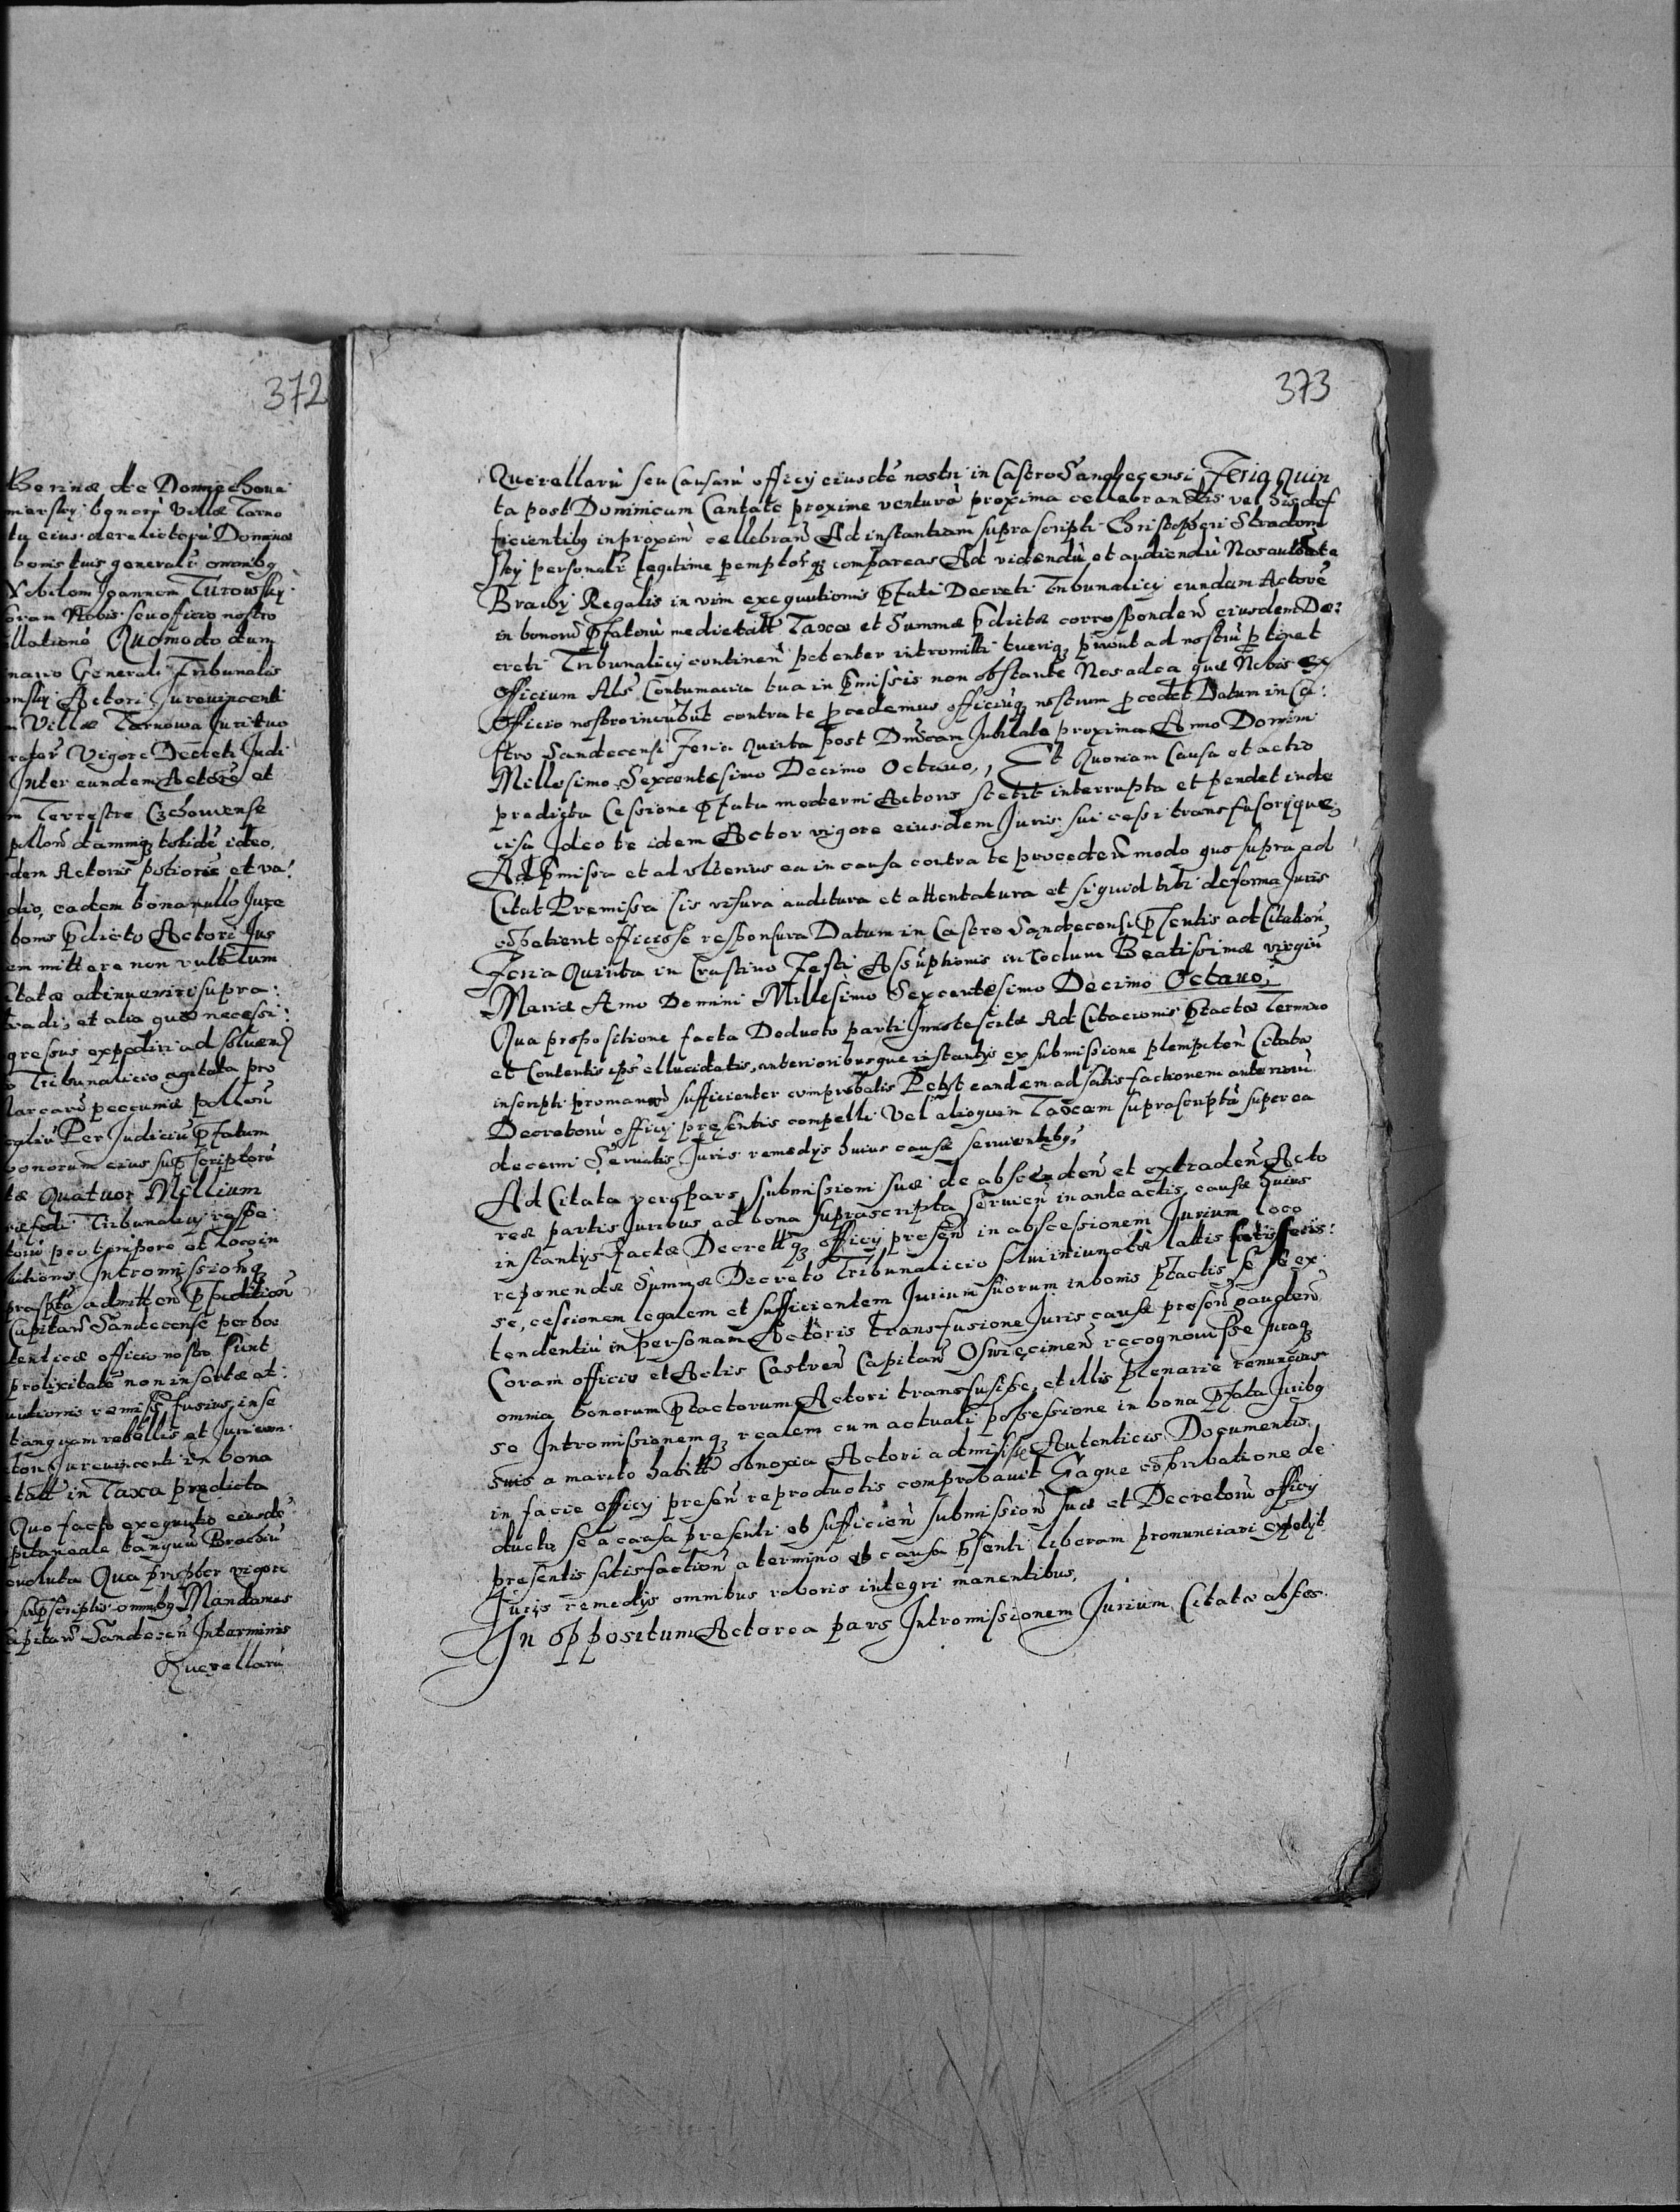 372
therinæ de Domiechoua
merskij bonorũ Villæ Tarno
tu eius derelictorũ Domina
bonis tuis generalr omnibq
Nobilem Joannem Turowskij
oram Nobis seu officio nostro
llationẽ Quomodo dum
nario Generali Tribunalis
omskij Actori Jureuincenti
Villæ Tarnowa Juri tuo
Vigore Decreti Judi
Inter eundem Actorẽ et
m Terrestre Czchouiense
damniqz totidẽ ideo,
dem Actoris potioris et va:
dio, eadem bona nullo Jure
bonis pdicto Actori Jus
em mittere non vult Tum
Citatæ adinueniri supra:
tradi, et alia quæ necessi:
gressus expediri ad soluend
o Tribunalicio agitata pro
pecuniæ pollon
Per Judiciũ pfatum
bonorum eius supscriptorũ
tæ Quatuor Millium
Tribunalicij
pro tempore et loco in
Intromissionqz
admitten
Capitan Sandecense per hoc
tenticæ officio nostro sunt
prolixitatẽ non insertæ at:
utionis remiss fusius, inse
tanquam rebellis et Juri
tori Jureuincenti in bona
in Taxa predicta
Quo facto exequutio eiusdẽ
pitaneale tanquã Brachiũ
euoluta Qua propter vigore
supscriptis omnibq Mandamus
apitan Sandecen Interminis
Querellarũ
373
Querellarũ seu Causarũ officij eiusdẽ nostri in Castro Sandecensi Feria Quin
ta post Dominicam Cantate proxime venturã proxima cellebrandis vel his def
ficientibq inproxim cellebran Ad instantiam suprascripti Christopheri Stradom
skij personalr legitime pemptorqz compareas Ad videndũ et audiendũ Nos authte
Brachij Regalis in vim exequutionis pfati Decreti Tribunalicij eundem Actorẽ
in bonorũ pfatorũ medietatt Taxæ et Summæ pdictæ corresponden eiusdem De:
creti Tribunalicij continen potenter intromitti tueriqz prout ad nostrũ ptinet
Officium Als Contumacia tua in pmissis non obstante Nos ad ea quæ Nobis ex
Officio nostro incubũt contra te pcedemus officiũqz nostrum pcedet Datum in Ca:
stro Sandecensi Feria Quinta post Dnicam Jubilate proxima Anno Domini
Millesimo Sexcentesimo Decimo Octauo,, Et Quoniam Causa et actio
predicta Cessione pfata moderni Actoris stetit interrupta et pendet inde
cisa Ideo te idem Actor vigore eiusdem Juris sui cessi transfusorijque
Ad pmissa et ad vlterius ea in causa contra te proceden modo quo supra ad
Citat Premissa sis visura auditura et attentatura et siquid tibi de forma Juris
cõpetient officiose responsura Datum in Castro Sandecensi psentis ad Citation
Feria Quinta in Crastino Festi Assũptionis in Coelum Beatissimæ virgin
Mariæ Anno Domini Millesimo Sexcentesimo Decimo Octauo,
Qua propositione facta Deducto parti Innotescitæ Ad Citacionis ptactæ Termino
et Contentis ips ellucidatis, anterioribusque instantijs ex submissione Citatæ
inscripti promanan sufficienter comprobatis Petyt eandem ad satisfactionem anteriorũ
Decretorũ officij presentis compelli Vel alioquin Taxam suprascriptã super ea
decerni Seruatis Juris remedijs huius causæ seruientibq,
Ad Citata vero pars submissioni suæ de abscenden et extraden Acto
reæ partis Juribus ad bona suprascripta seruien in anteactis causæ huius
instantijs factæ Decrettqz officij presen in abscessionem Jurium loco
reponendæ Summæ Decreto Tribunalicio solui iniunctæ lattis satisfecis:
se, cessionem legalem et sufficientem Jurium suorum in bonis ptactis se se ex
tendentiũ in personam Actoris transfusione Juris causæ presen gauden
Coram officio et Actis Castren Capitan Oswiecimen recognouisse Juraqz
omnia bonorum ptactorum Actori transfusisse, et illis plenarie renuncias
se Intromissionemqz realem cum actuali possessione in bona pfata Juribq
suis a marito habitt obnoxia Actori admisisse Autenticis Documentis
in facie officij presen reproductis comprobauit Eaque cõprobatione de
ducta se a causa presenti ob sufficien submission suæ et Decretorũ officij
presentis satisfaction a termino et causa psenti liberam pronunciari expetijt
Juris remedijs omnibus roboris integri manentibus,
In oppositum Actorea pars Intromissionem Jurium Citatæ absces.